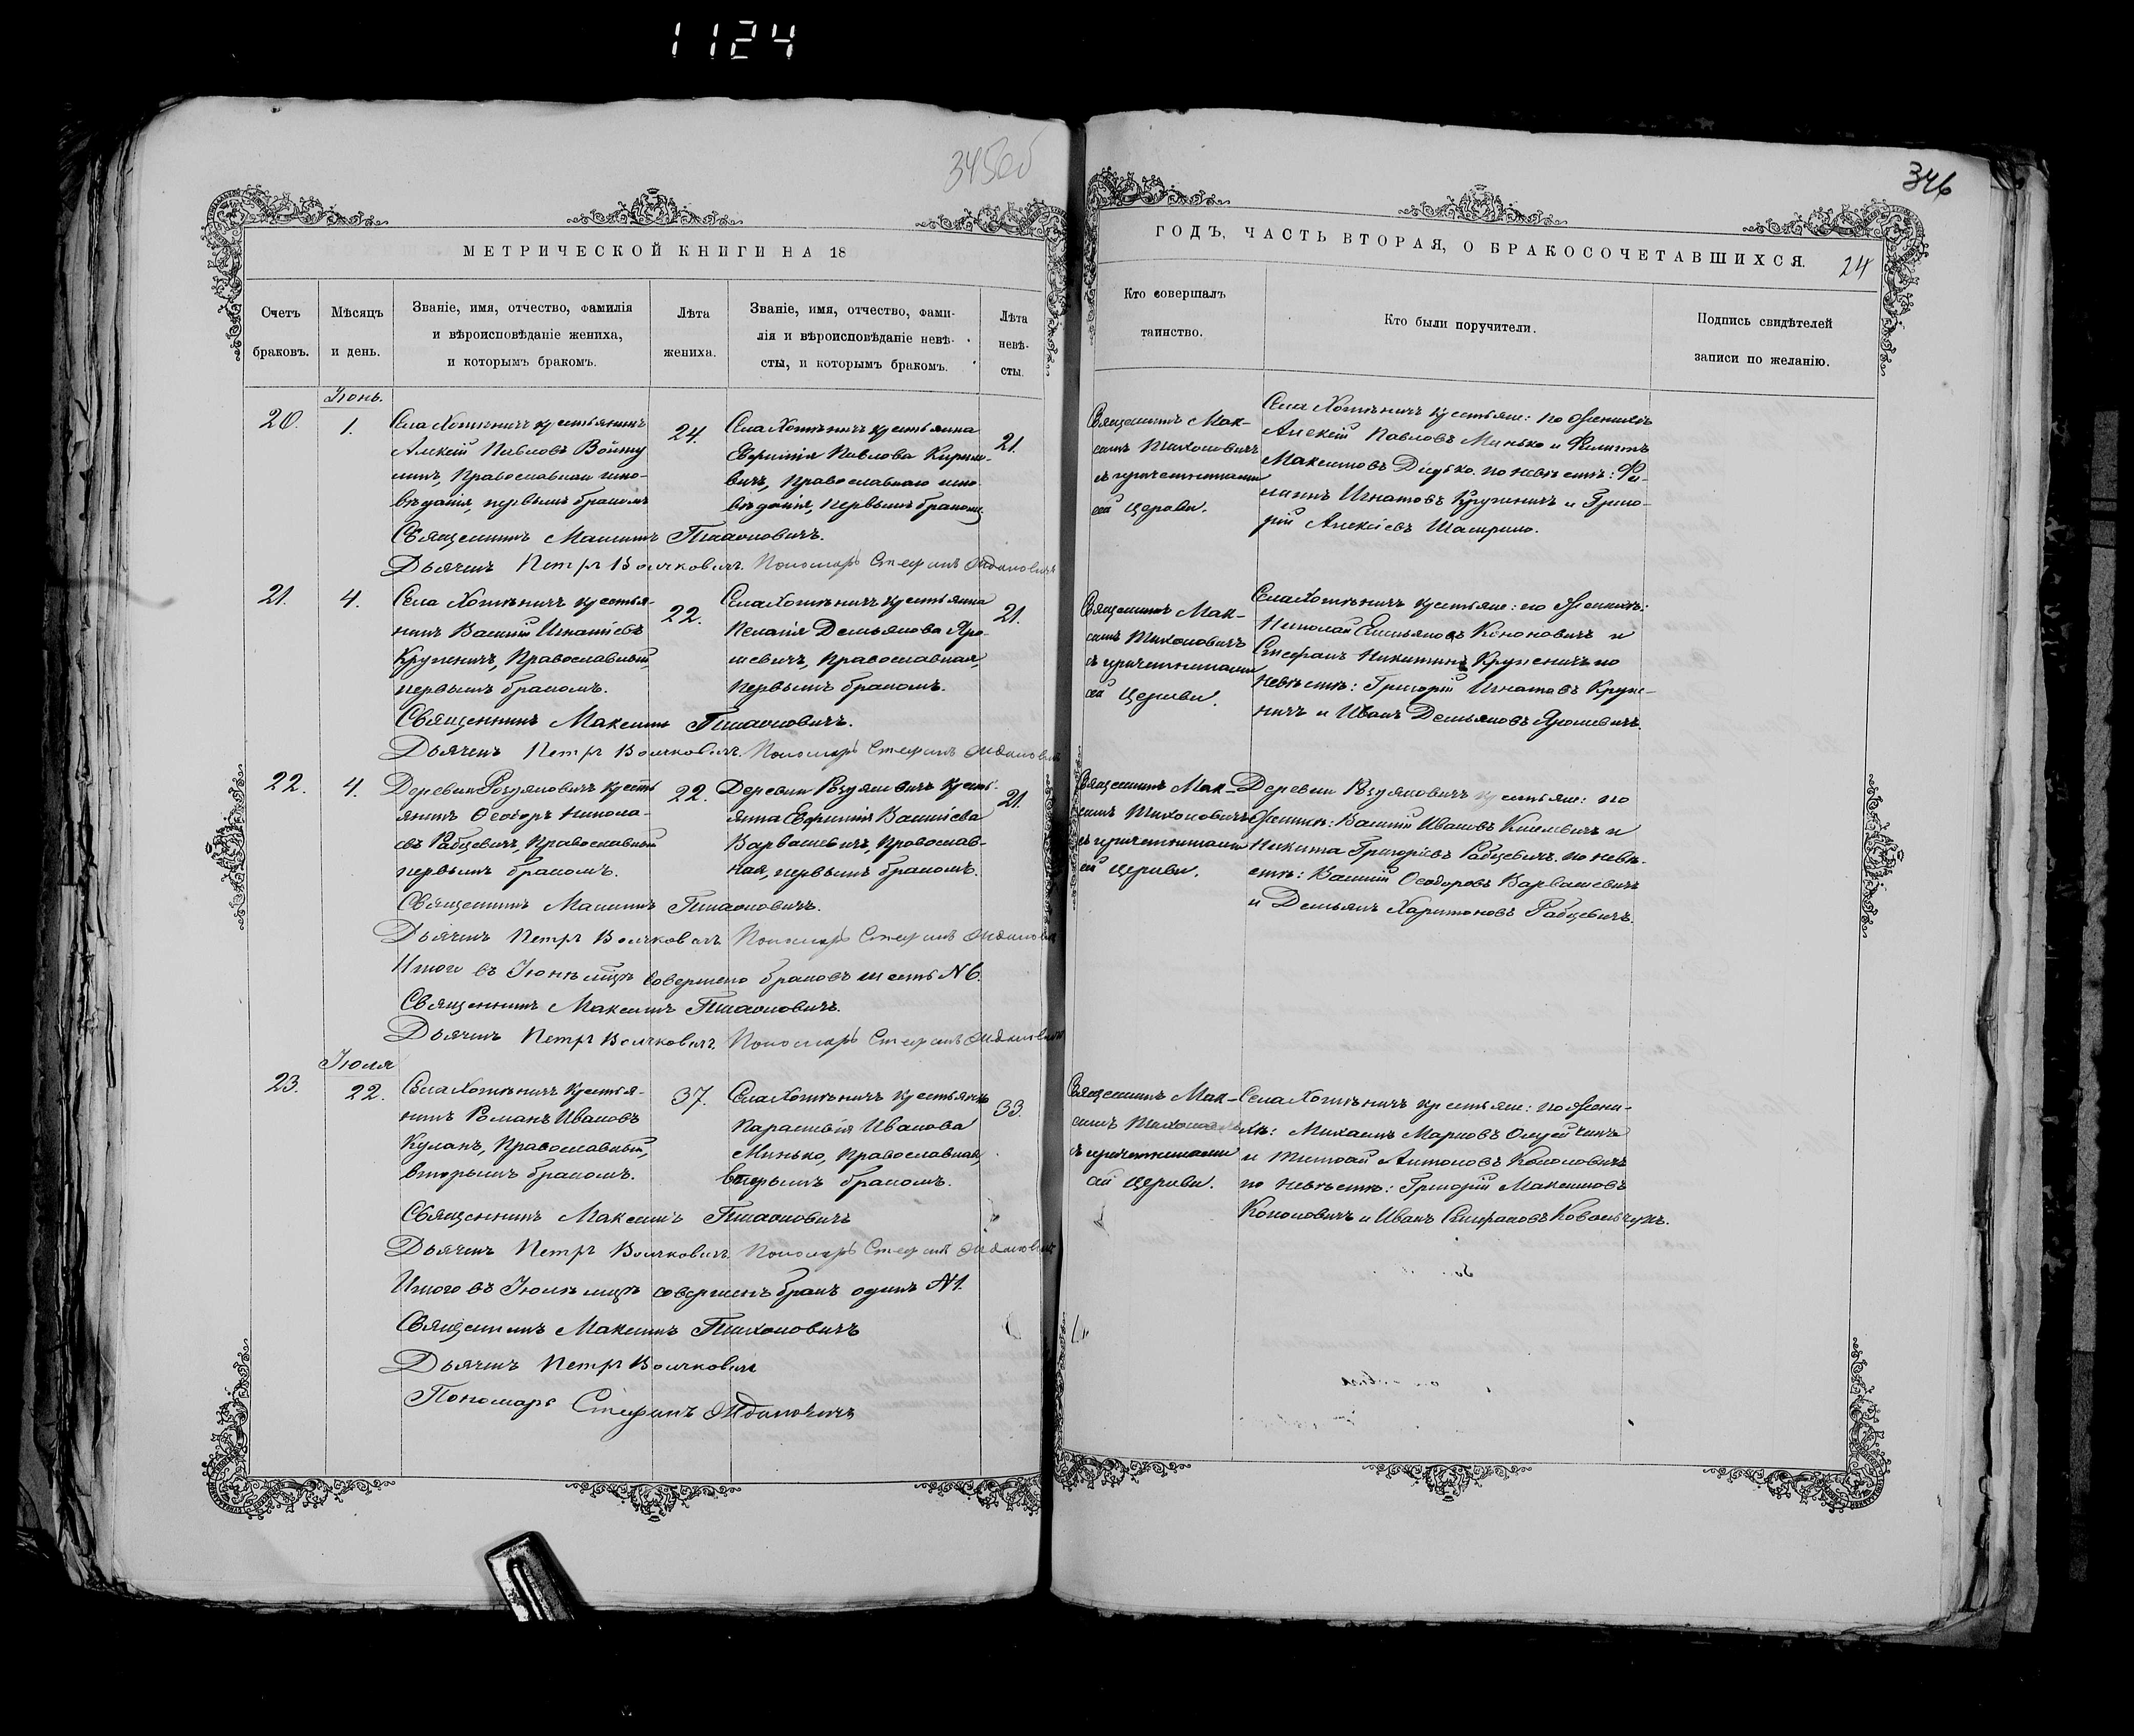 1124
345об
346
МЕТРИЧЕСКОЙ КНИГИ НА 18
ГОДЪ, ЧАСТЬ ВТОРАЯ, О БРАКОСОЧЕТАВШИХСЯ.
24
Счетъ
браковъ.
Мѣсяцъ
и день.
Званіе, имя, отчество, фамилія
и вѣроисповѣданіе жениха,
и которымъ бракомъ.
Лѣта
жениха.
Званіе, имя, отчество, фами-
лія и вѣроисповѣданіе невѣ-
сты, и которымъ бракомъ.
Лѣта
невѣ-
сты.
Кто совершалъ
таинство.
Кто были поручители.
Подпись свидѣтелей
записи по желанію.
Іюнь.
20.
1.
Села Хотѣничъ крестьянинъ
Алексій Павловъ
Православнаго испо-
вѣданія, первымъ бракомъ
24.
Села Хотѣничъ крестьянка
Евфимія Павлова Кирило-
вичъ, Православнаго испо-
вѣданія, первымъ бракомъ
21.
Священникъ Мак-
симъ Тихоновичъ
съ причетниками
сей церкви.
Села Хотѣничъ крестьяне: по женихѣ
Алексій Павловъ Минько и Филиппъ
Максимовъ Дидько. по невѣстѣ: Фи-
липпъ Игнатовъ Крупеничъ и Григо-
рій Алексіевъ
Священникъ Максимъ Тихоновичъ.
Дьячекъ Петръ Волчковичъ. Пономарь Стефанъ Ждановичъ
21.
4.
Села Хотѣничъ крестья-
нинъ Василій Игнатіевъ
Крупеничъ, Православный
первымъ бракомъ.
22.
Села Хотѣничъ крестьянка
Пелагія Демьянова Яро-
шевичъ, Православная,
первымъ бракомъ.
21.
Священникъ Мак-
симъ Тихоновичъ
съ причетниками
сей церкви.
Села Хотѣничъ крестьяне: по женихѣ:
Николай Емельяновъ Кононовичъ и
Стефанъ Никитинъ Крупеничъ по
невѣстѣ: Григорій Игнатовъ Крупе-
ничъ и Иванъ Демьяновъ Ярошевичъ.
Священникъ Максимъ Тихоновичъ.
Дьячекъ Петръ Волчковичъ. Пономарь Стефанъ Ждановичъ
22.
4.
Деревни крестья-
янинъ Ѳеодоръ Никола-
евъ Рабцевичъ, Православный
первымъ бракомъ.
22.
Деревни кресть-
янка Евфимія Василіева
Варвашевичъ, Православ-
ная, первымъ бракомъ.
21.
Священникъ Мак-
симъ Тихоновичъ
съ причетниками
сей церкви.
Деревни крестьяне: по
женихѣ: Василій Ивановъ и
Никита Григоріевъ Рабцевичъ. по невѣ-
стѣ: Василій Ѳеодоровъ Варвашевичъ
и Демьянъ Харитоновъ Рабцевичъ.
Священникъ Максимъ Тихоновичъ.
Дьячекъ Петръ Волчковичъ. Пономарь Стефанъ Ждановичъ
Итого въ Іюнѣ мцѣ совершено браковъ шесть N 6.
Священникъ Максимъ Тихоновичъ.
Дьячекъ Петръ Волчковичъ. Пономарь Стефанъ Ждановичъ
Іюля
23.
22.
Села Хотѣничъ крестья-
нинъ Романъ Ивановъ
Кулакъ, Православный,
вторымъ бракомъ.
37.
Села Хотѣничъ крестьянка
Параскевія Иванова
Минько, Православная,
вторымъ бракомъ.
33.
Священникъ Мак-
симъ Тихоновичъ
съ причетниками
сей церкви.
Села Хотѣничъ крестьяне: по жени-
хѣ: Михаилъ Марковъ
и Тимофей Антоновъ Кононовичъ
по невѣстѣ: Григорій Максимовъ
Кононовичъ и Иванъ Стефановъ Ковальчукъ.
Священникъ Максимъ Тихоновичъ
Дьячекъ Петръ Волчковичъ Пономарь Стефанъ Ждановичъ
Итого въ Іюлѣ мцѣ совершенъ бракъ одинъ N 1.
Священникъ Максимъ Тихоновичъ
Дьячекъ Петръ Волчковичъ
Пономарь Стефанъ Ждановичъ